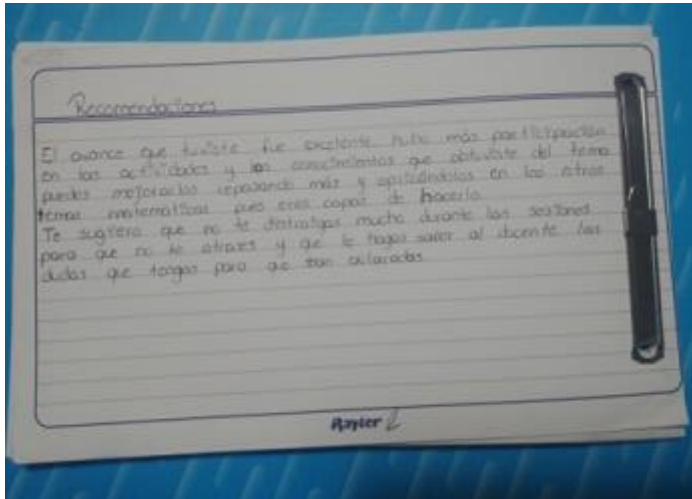 Recomendaciones
El avance que tuviste fue excelente hubo más participación
en las actividades y los conocimientos que obtuviste del tema
puedes mejorarlos repasando más y aplicándolos en los otros
temas matemáticos pues eres capaz de hacerlo.
Te sugiero que no te distraigas mucho durante las sesiones
para que no te atrases y que le hagas saber al docente las
dudas que tengas para que sean aclaradas
Rayter